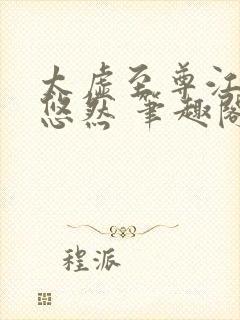 太虚至尊江
悠然 笔趣阁
程派